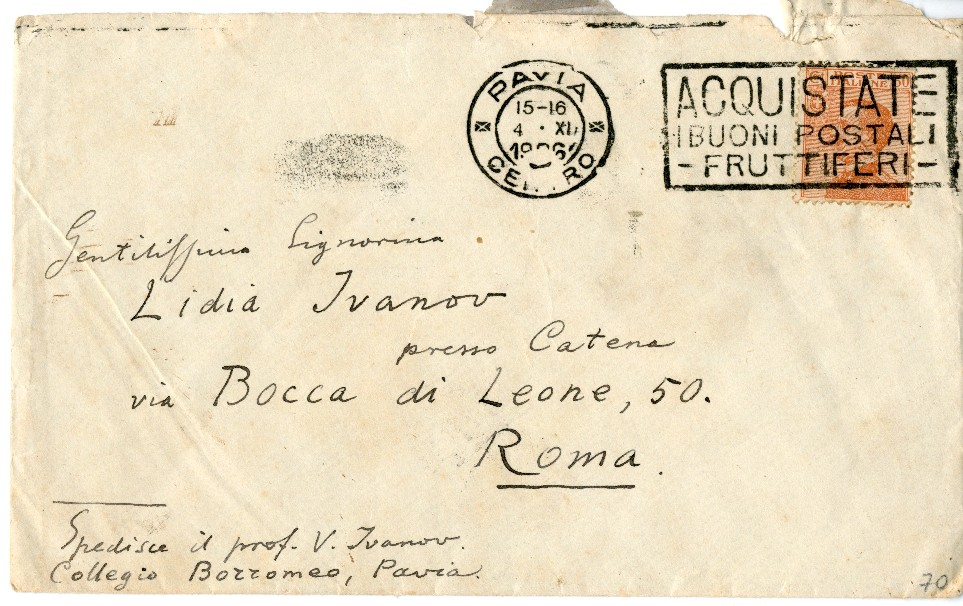 PAVIA
15-16
4 · XII
1926
CENTRO
ACQUISTATE
I BUONI POSTALI
- FRUTTIFERI -
Gentilissima Signorina
Lidia Ivanov
presso Catena
via Bocca di Leone, 50.
Roma.
Spedisce il prof. V. Ivanov.
Collegio Borromeo, Pavia.
70